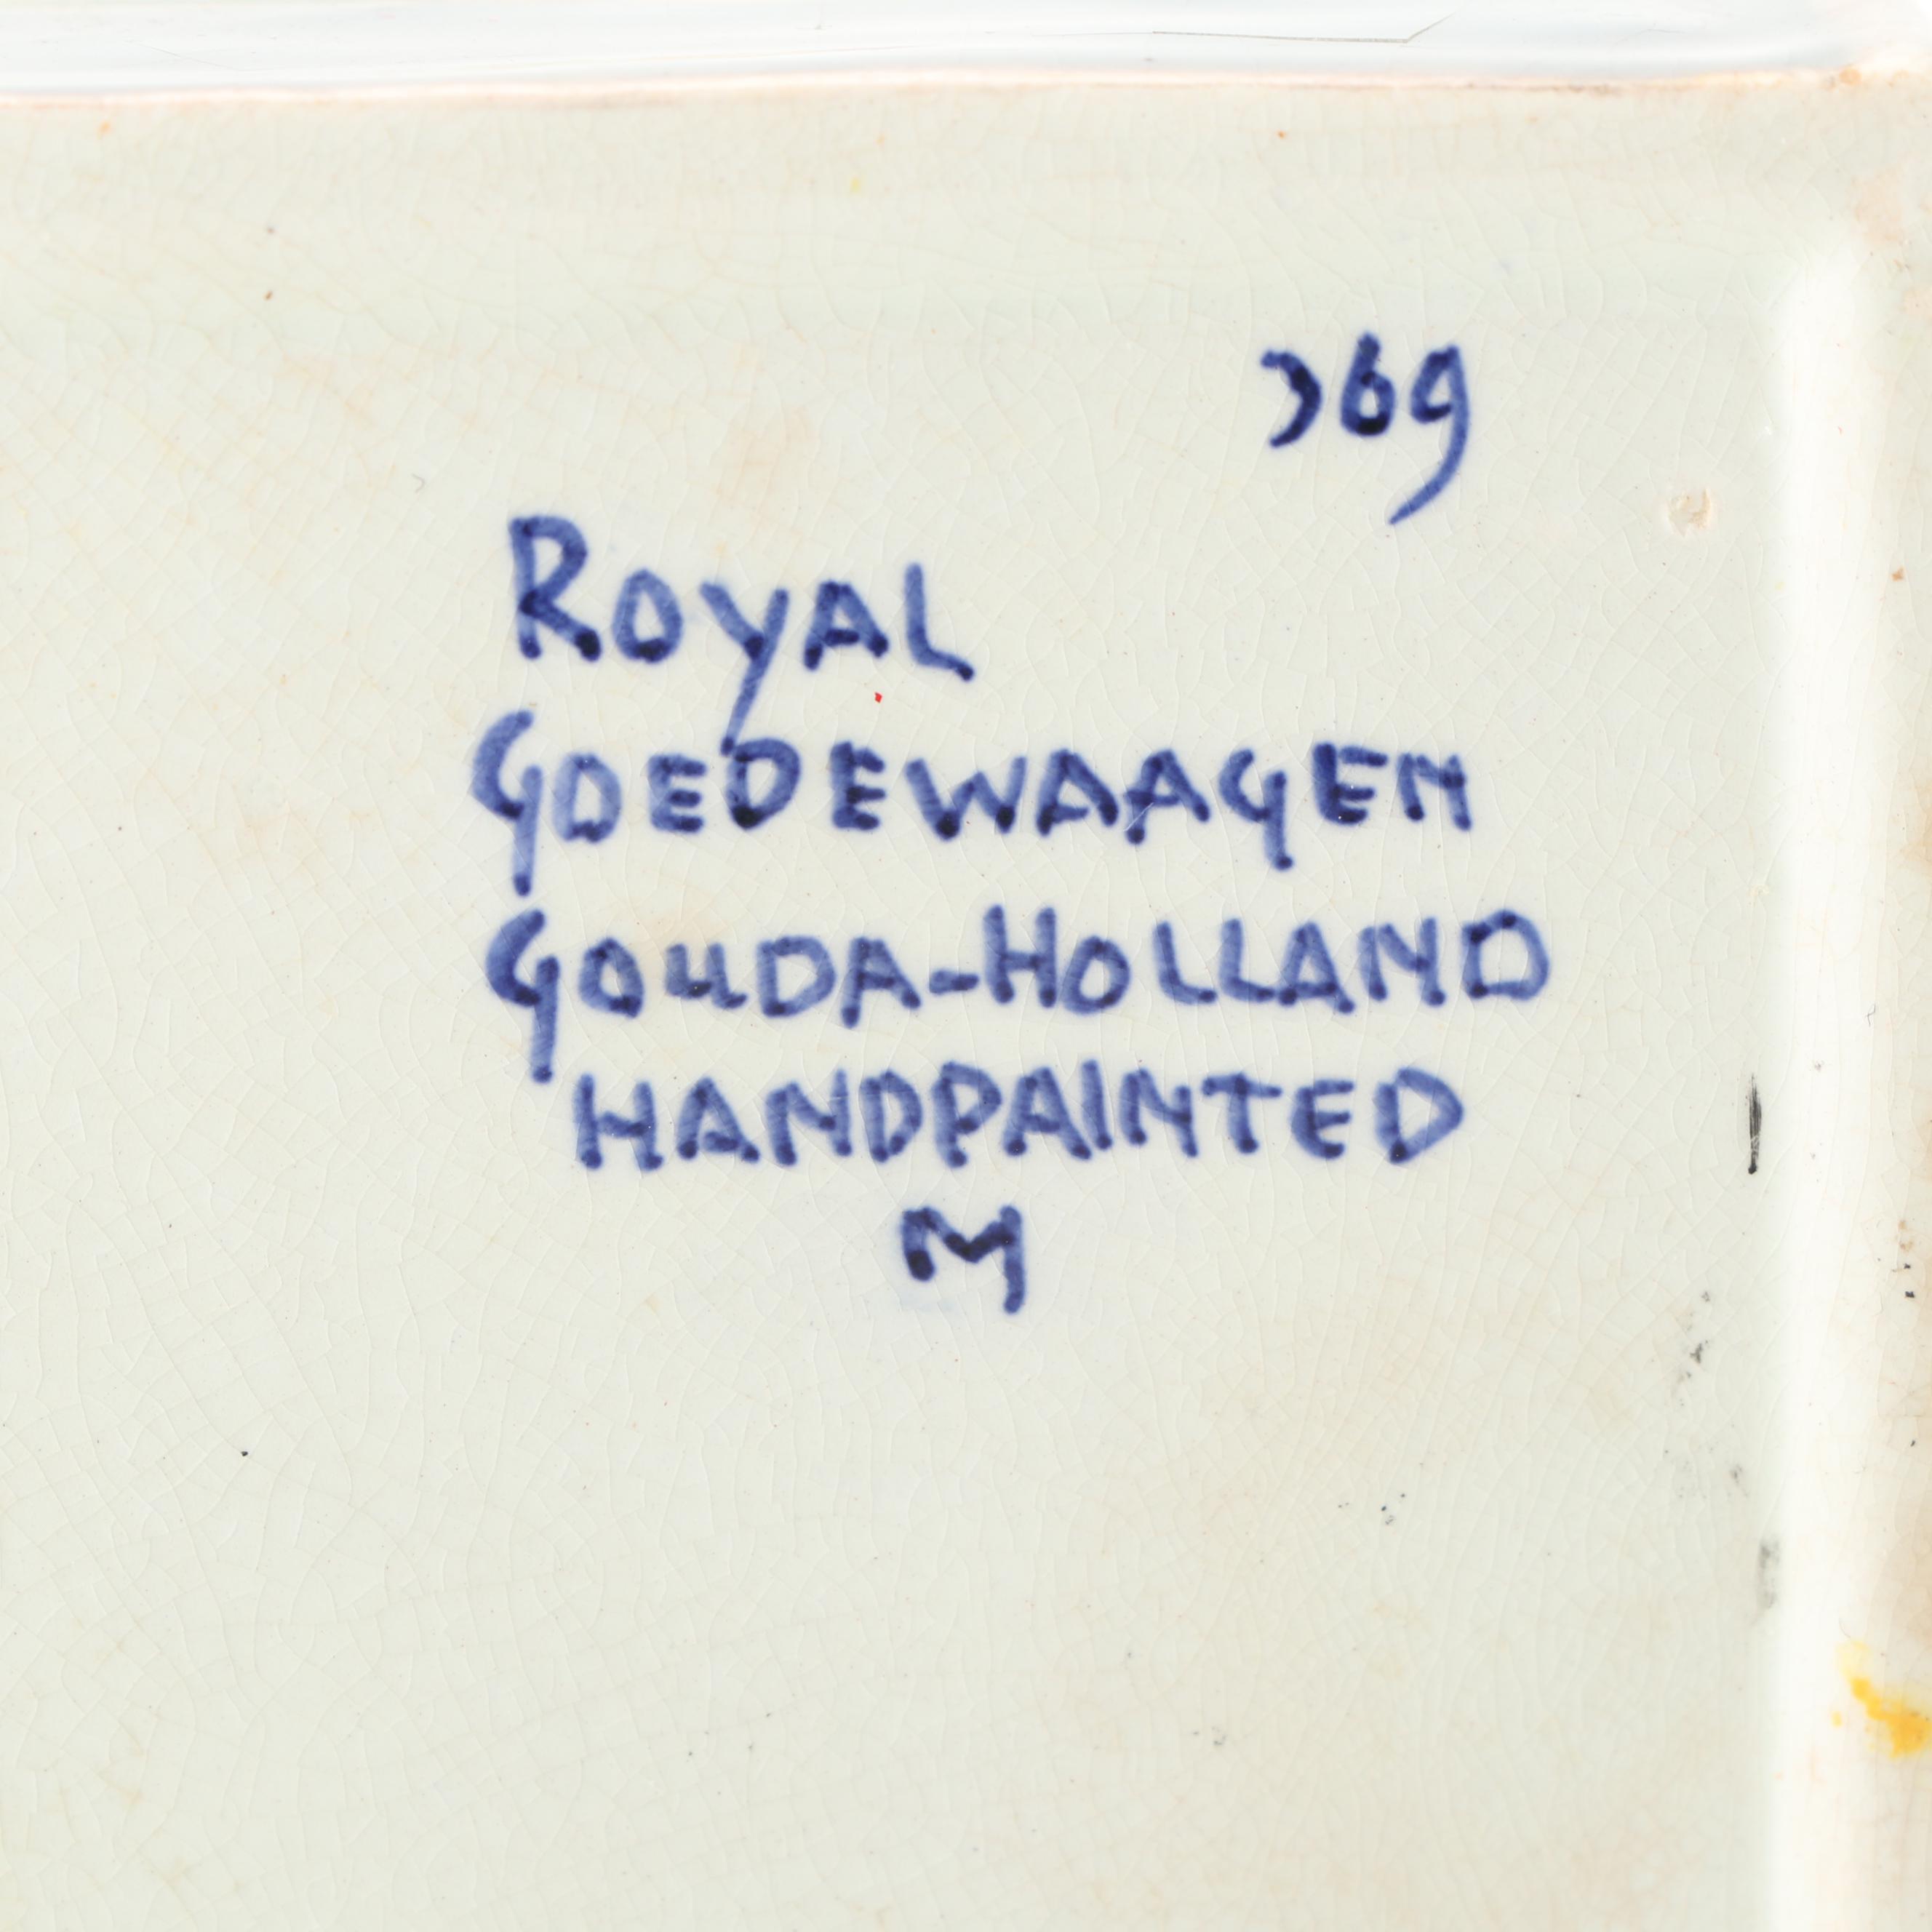 369
ROYAL
GOEDEWAAGEN
GOUDA-HOLLAND
HANDPAINTED
M